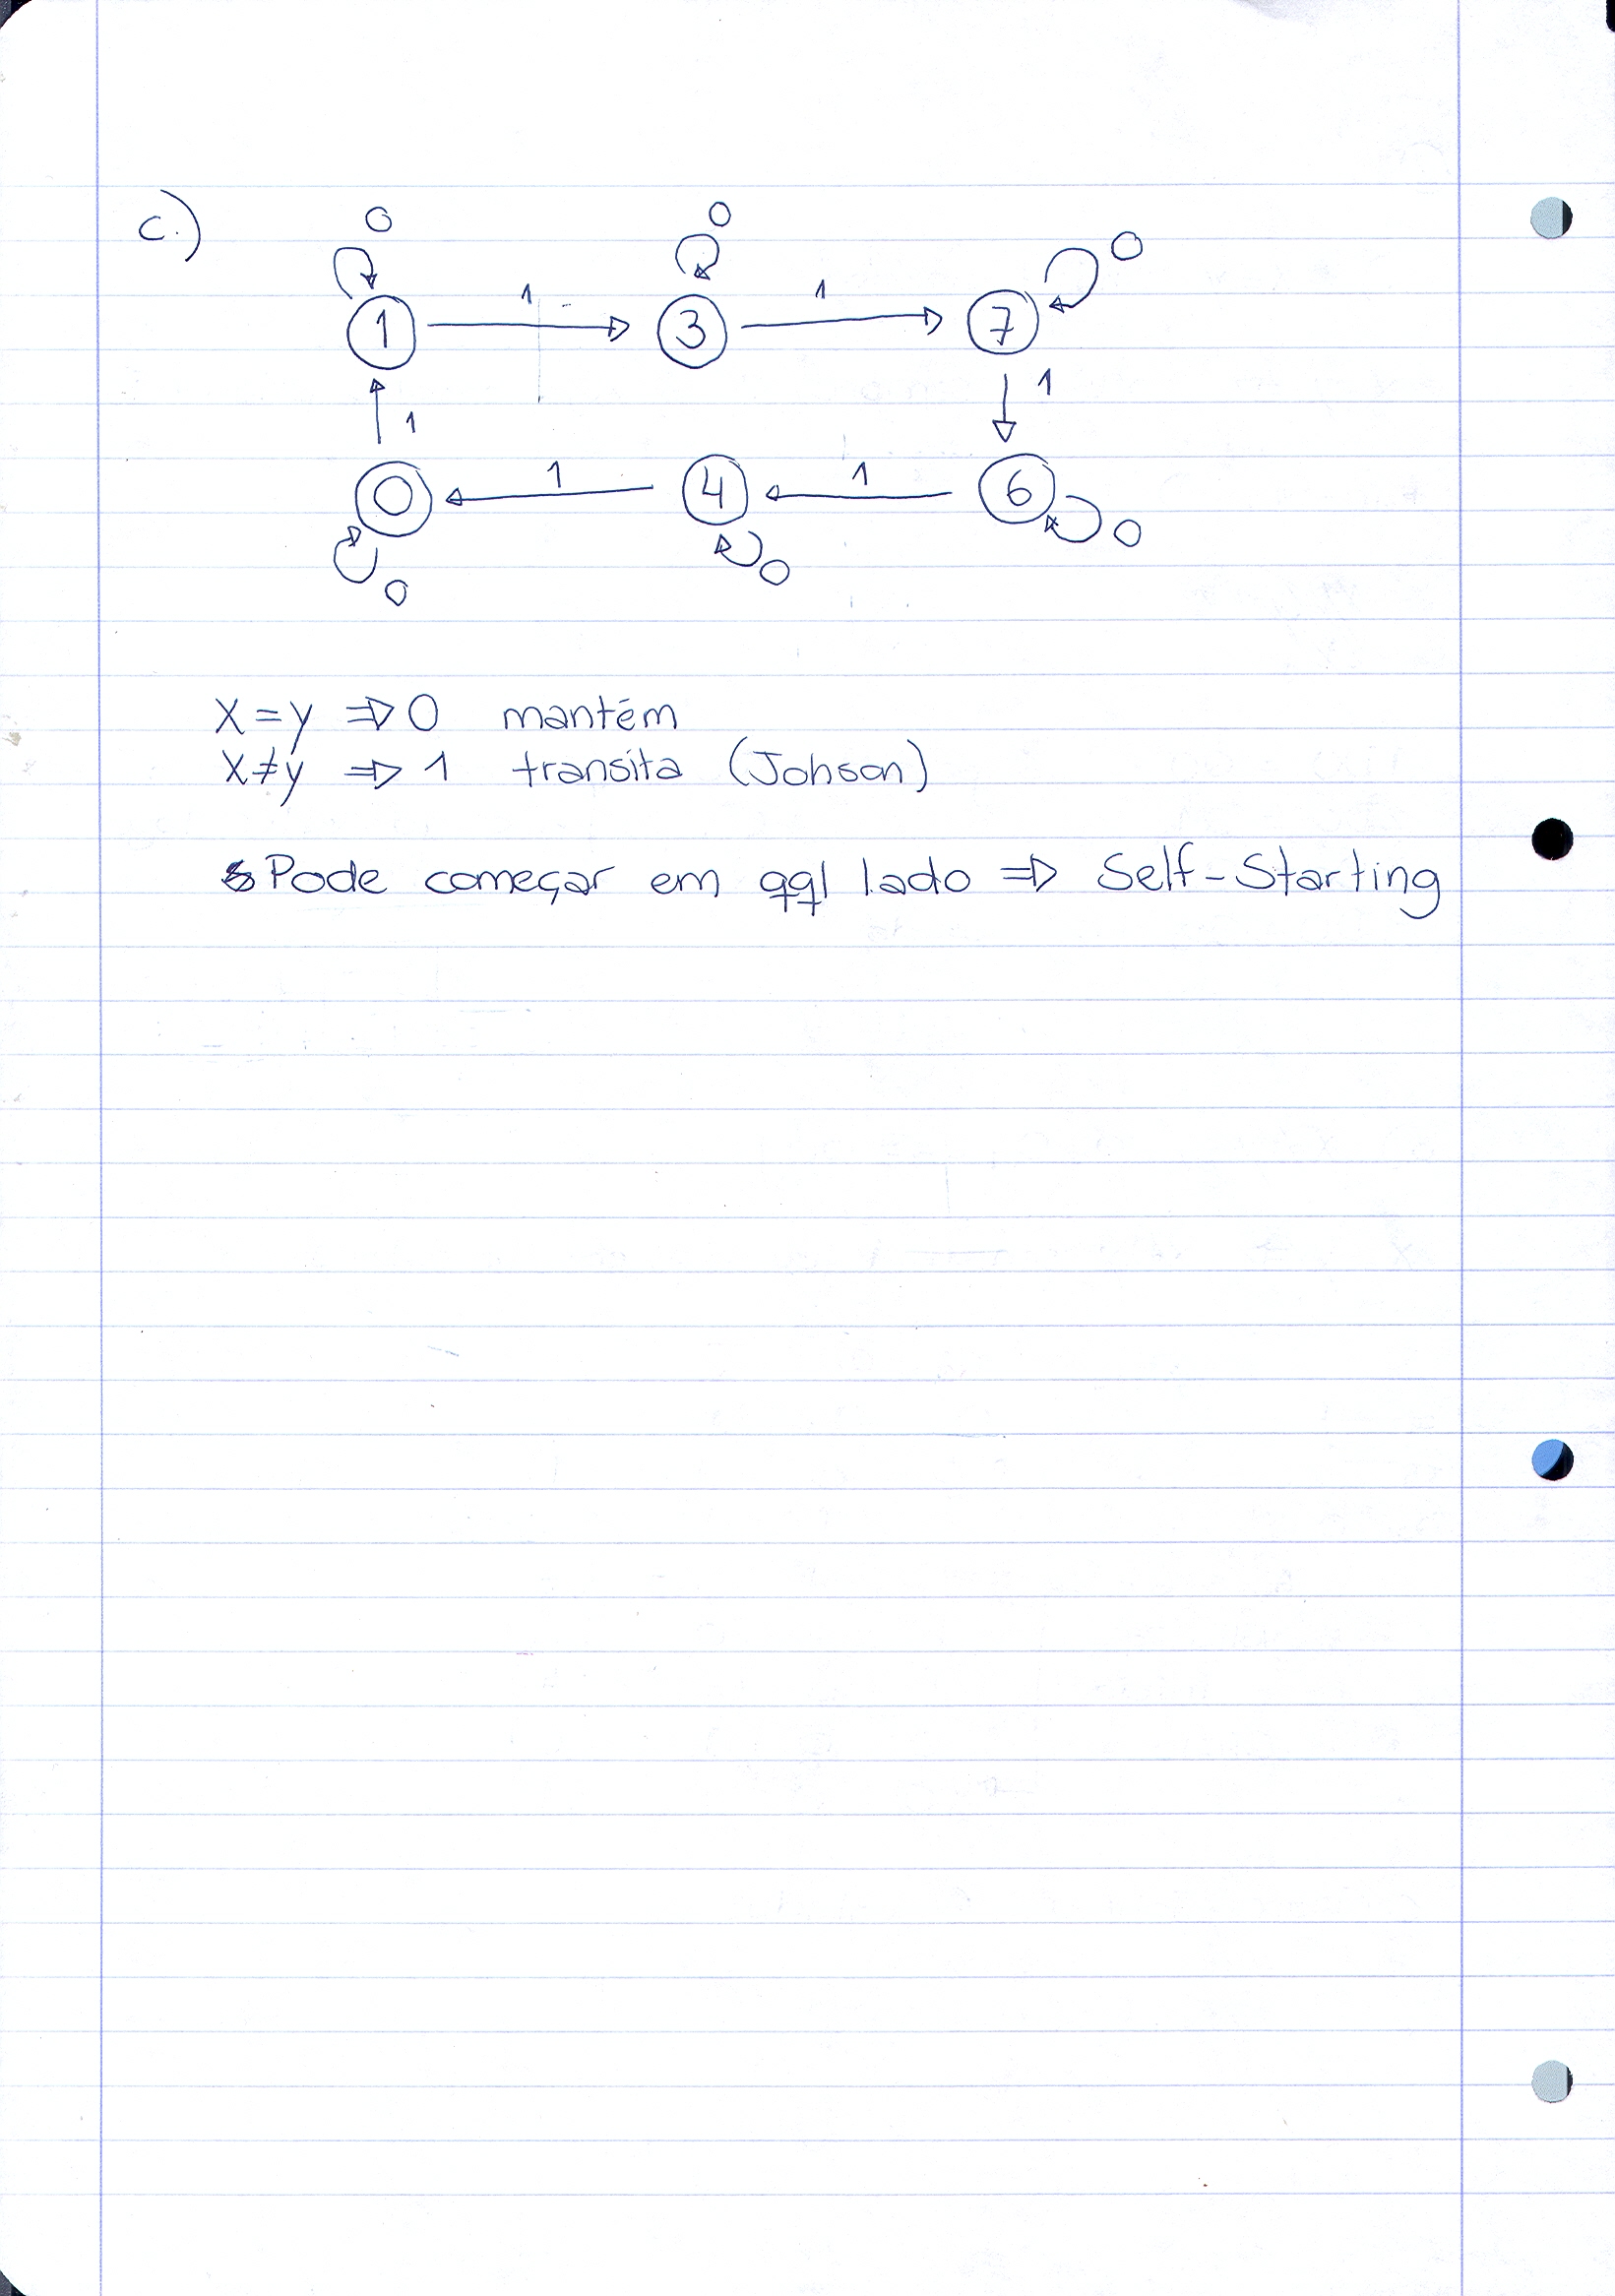 c.)
0 0 0
1 1 3 1 7
1 1
0 1 4 1 6
0 0 0
X=y ⇒ 0 mantém
X≠y ⇒ 1 transita (Johson)
Pode começar em qql lado ⇒ Self-Starting